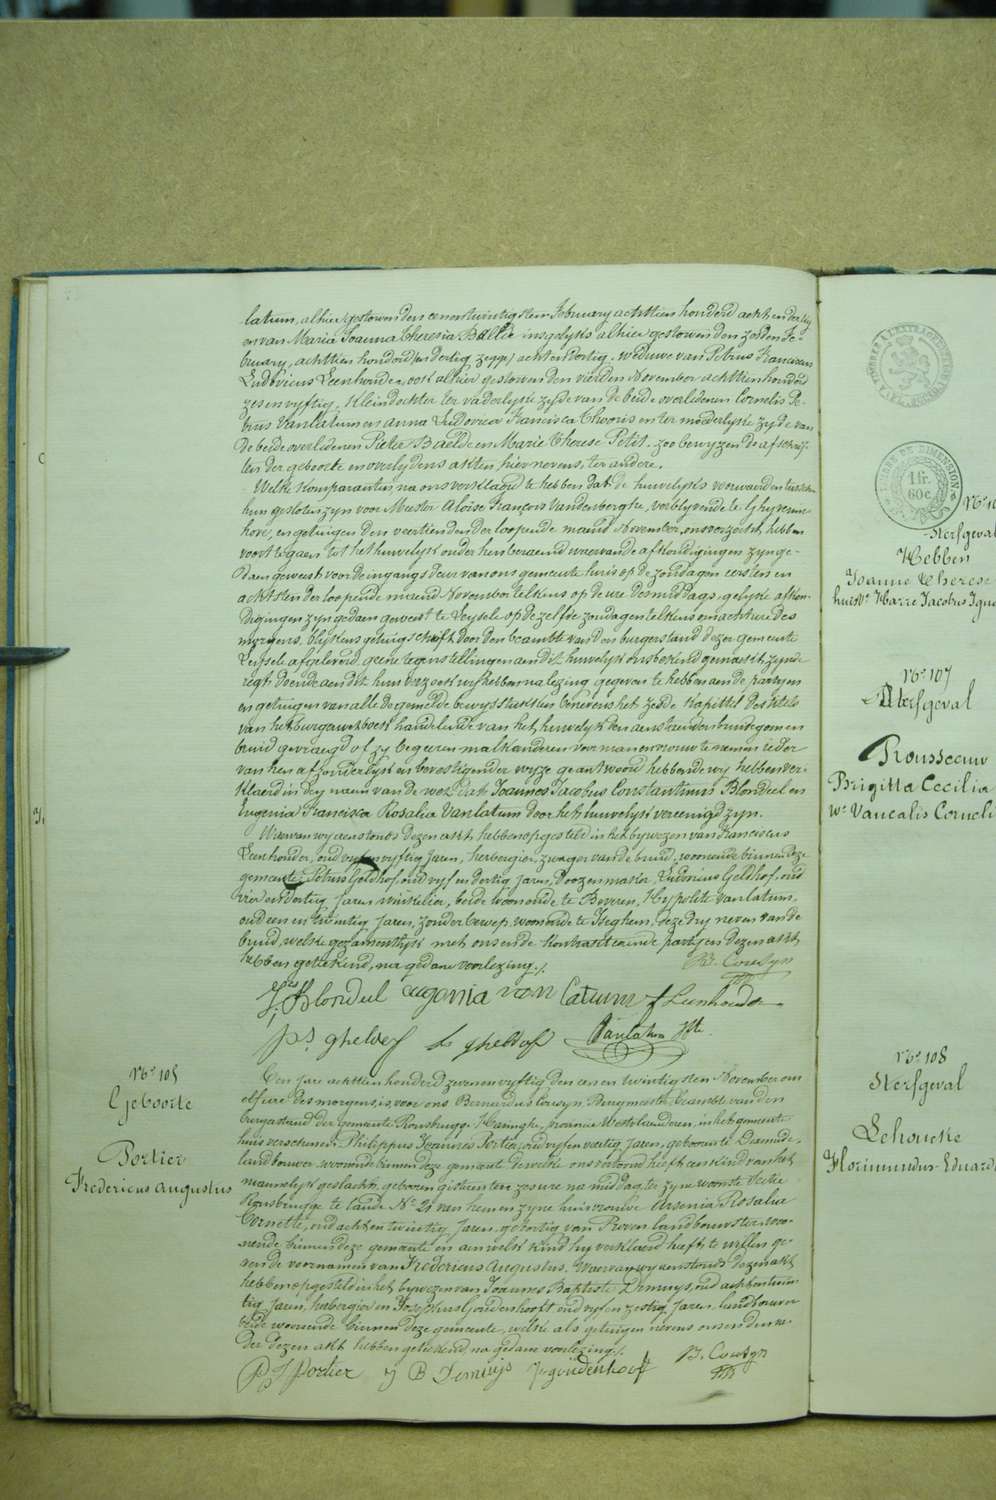 latum, alhier gestorven den eenentwintigsten February achttien honderd achtendertig
en van Maria Joanna Theresia Baelde insgelyks alhier gestorven den zesden Fe-
bruary, achttien honderd achtendertig, weduwe van Petrus Franciscus
Ludovicus Leenhouder, ook alhier gestorven den vierden November achttienhonderd
zesenvyftig, kleindochter ter vaderlyke zyde van de beide overledenen Cornelis Pe-
trus Vanlatum en Anna Ludovica Francisca Thooris en ter moederlyke zyde van
de beide overledenen Pieter Baelde en Marie Therese Petit. zoo bewyzen de afschrif-
ten der geboorte en overlydens akten hiernevens, ter andere.
Welke komparanten na ons verklaerd te hebben dat de huwelyks voorwaerden tusschen
hun gesloten zyn voor Meester Aloise François Vandenberghe, verblyvende te Ghyverinc-
hove, en getuigen den veertienden der loopende maend November, ons verzocht hebben
voort te gaen tot het huwelyk onder hen beraemd waervan de afkondigingen zyn ge-
daen geweest voor de ingangs deur van ons gemeente huis op de zondagen eersten en
achtsten der loopende maend November telkens op de ure des middags, gelyke afkon-
digingen zyn gedaen geweest te Leysele op de zelfde zondagen telkens om acht ure des
morgens, blykens getuigschrift door den beambte van den burgerstand dezer gemeente
Leysele afgeleverd, geene tegenstellingen aen dit huwelyk ons bekend gemaekt zynde
regt doende aen dit hun verzoek wy hebben na lezing gegeven te hebben aen de partyen
en getuigen van alle de gemelde bewysstukken benevens het zesde kapittel des titels
van het burger wetboek handelende van het huwelyk den aenstaenden bruidegom en
bruid gevraegd of zy begeeren malkanderen voor man en vrouw te nemen ieder
van hen afzonderlyk en bevestigender wyze geantwoord hebbende wy hebben ver-
klaerd in den naem van de wet dat Joannes Jacobus Constantinus Blondeel en
Eugenia Francisca Rosalia Vanlatum door het huwelyk vereenigd zyn.
Waervan wy aenstonds dezen akt hebben opgesteld in het bywezen van Franciscus
Leenhouder, oud vyfenvyftig jaren, herbergier, zwager van de bruid, woonende binnen deze
gemeente; Petrus Geldhof oud vyf en dertig jaren, doozenmaker, Ludovicus Geldhof oud
vierendertig jaren winkelier, beide woonende te Beveren, Hypolite Vanlatum,
oud een en twintig jaren, zonder beroep, woonende te Iseghem, deze dry neven van de
bruid, welke gezamentlyk met ons en de kontrakteerende partyen dezen akt
hebben geteekend, na gedane voorlezing./.
B. Cousyn
J. Blondeel eugenia van Latum f Leenhouder
ps. gheldof L gheldof Vanlatum Hte
No 105
Geboorte
Portier
Fredericus Augustus
Den jare achttienhonderd zevenenvyftig den een en twintigsten November om
elf ure des morgens, voor ons Bernardus Cousyn, Burgmeester, beambte van den
burgerstand der gemeente Rousbrugge-Haringhe, provincie Westvlaanderen, in het gemeente
huis verschenen: Philippus Joannes Portier, oud vyfenveertig jaren, geboren te Dixmude,
landbouwer woonende binnen deze gemeente dewelke ons vertoond heeft een kind van het
mannelyk geslacht, geboren gisteren ten zes ure na middag, te zyne woonste sectie
Rousbrugge te lande No 21 van hem en zyne huisvrouwe Arsenia Rosalie
Cornette, oud achtentwintig jaren, geboortig van Proven landbouwster, woo-
nende binnen deze gemeente en aen welk kind hy verklaerd heeft te willen ge-
ven de voornamen van Fredericus Augustus. Waervan wy aenstonds dezen akt
hebben opgesteld in het bywezen van Joannes Baptiste Demuys, oud achtentwin-
tig jaren, herbergier en Josephus Goudenhooft oud vyfenzestig jaren, landbouwer
beide woonende binnen deze gemeente, welke als getuigen nevens ons en den va-
der dezen akt hebben geteekend na gedane voorlezing./.
B. Cousyn
P J Portier J B Demuijs J goudenhooft
TIMBRE DE DIMENSION
1 fr.
60 c.
Sterfgeval
Hebben
Joanne Therese
huisv. Harre Jacobus Igna
No 107
Sterfgeval
Rousseeuw
Brigitta Cecilia
We Vancalis Corneli
No 108
Sterfgeval
Lehoucke
Florimundus Eduard